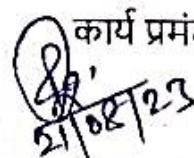 कार्य प्रमं
21/08/23